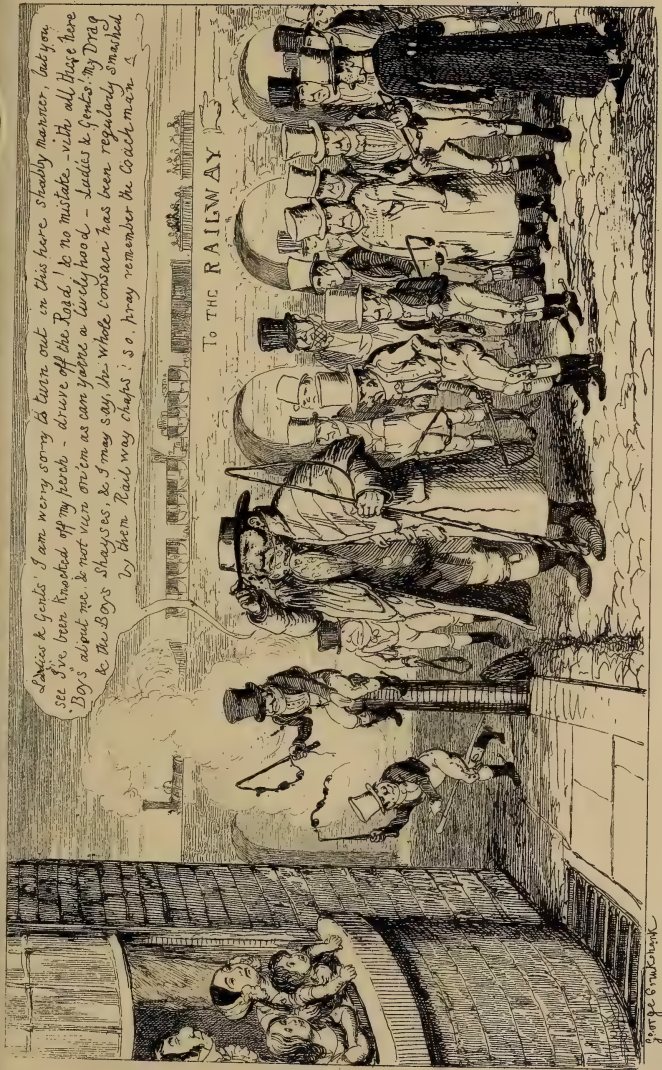 Ladies & Gents! I am werry sorry to turn out in this here shabby manner, but you
see I've been Knocked off my perch - druve off the Road! & no mistake - with all these here
"Boys" about me & not vun on'em as can yarne a livelyhood - Ladies & Gents! my Drag
& the Boys Shayses, & I may say, the whole consarn has been regularly smashed
by them Railway chaps! so, pray remember the Coachman
TO THE RAILWAY
George Cruikshank